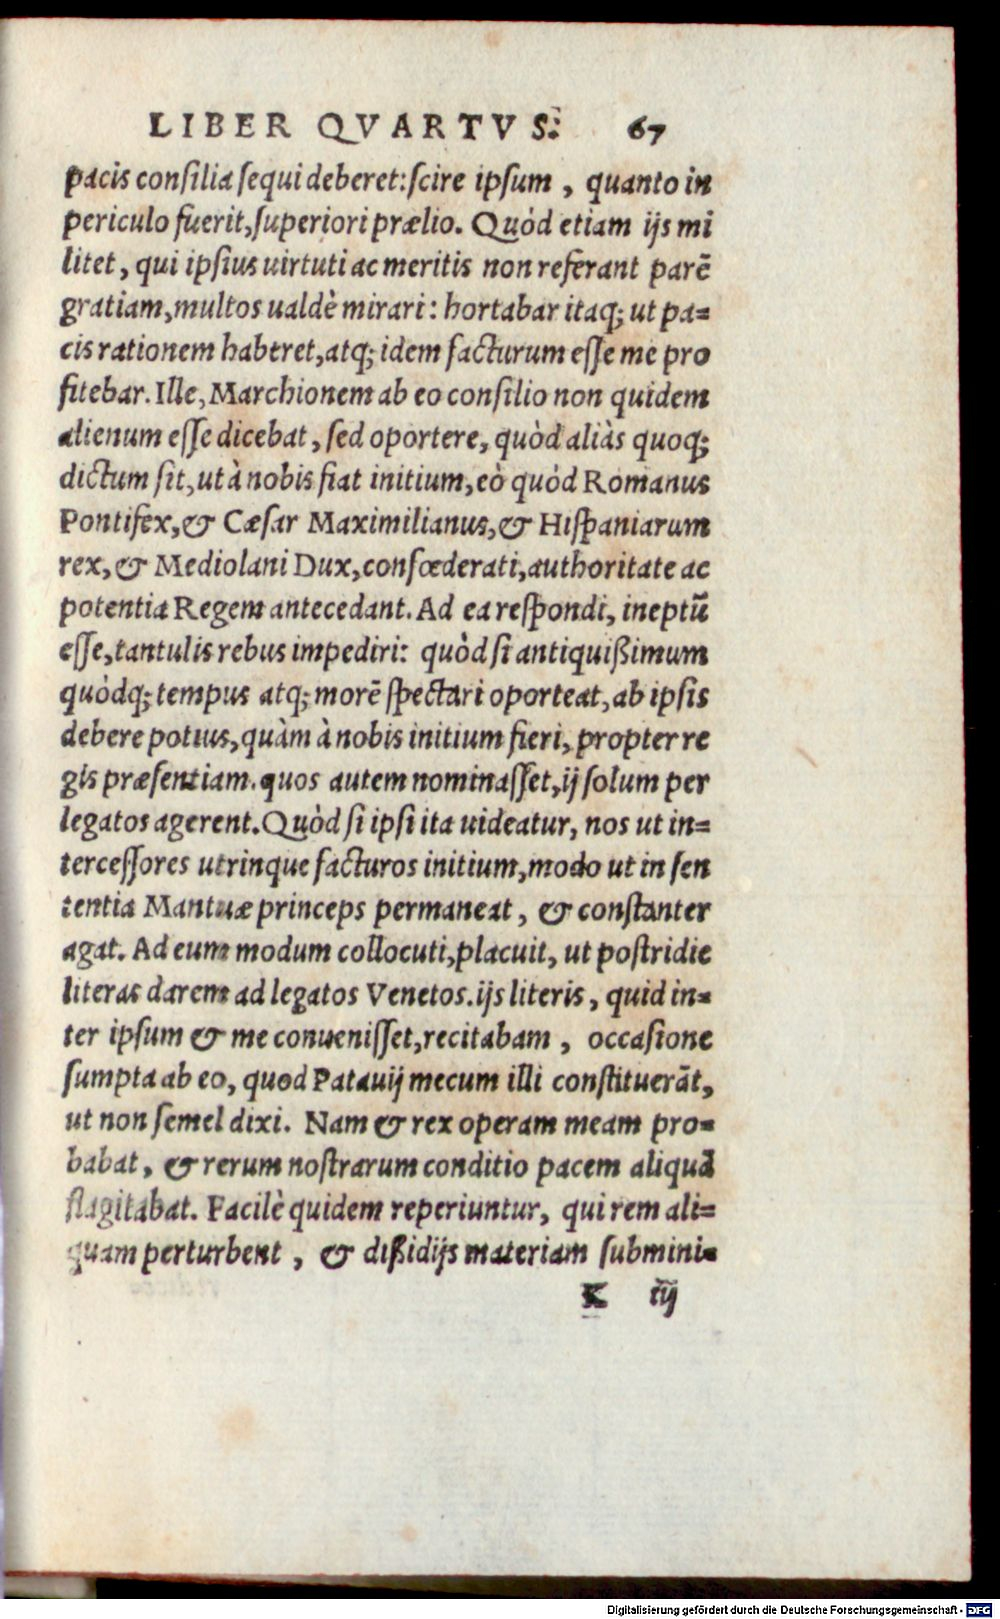 LIBER QVARTVS. 67
pacis consilia sequi deberet: scire ipsum, quanto in
periculo fuerit, superiori prælio. Quòd etiam ijs mi
litet, qui ipsius uirtuti ac meritis non referant parẽ
gratiam, multos ualdè mirari: hortabar itaq; ut pa=
cis rationem haberet, atq; idem facturum esse me pro
fitebar. Ille, Marchionem ab eo consilio non quidem
alienum esse dicebat, sed oportere, quòd aliàs quoq;
dictum sit, ut à nobis fiat initium, eò quòd Romanus
Pontifex, & Cæsar Maximilianus, & Hispaniarum
rex, & Mediolani Dux, confœderati, authoritate ac
potentia Regem antecedant. Ad ea respondi, ineptũ
esse, tantulis rebus impediri: quòd si antiquißimum
quòdq; tempus atq; morẽ spectari oporteat, ab ipsis
debere potius, quàm à nobis initium fieri, propter re
gis præsentiam. quos autem nominasset, ij solum per
legatos agerent. Quòd si ipsi ita uideatur, nos ut in=
tercessores utrinque facturos initium, modo ut in sen
tentia Mantuæ princeps permaneat, & constanter
agat. Ad eum modum collocuti, placuit, ut postridie
literas darem ad legatos Venetos. ijs literis, quid in=
ter ipsum & me conuenisset, recitabam, occasione
sumpta ab eo, quod Patauij mecum illi constituerãt,
ut non semel dixi. Nam & rex operam meam pro=
babat, & rerum nostrarum conditio pacem aliquã
flagitabat. Facilè quidem reperiuntur, qui rem ali=
quam perturbent, & dißidijs materiam submini=
K iij
Digitalisierung gefördert durch die Deutsche Forschungsgemeinschaft - DFG